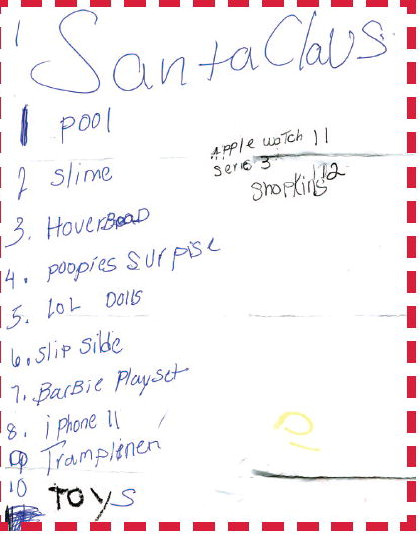 Santa Claus
1 pool
2 Slime
3. Hoverboad
4. poopies Surpise
5. LOL Dolls
6. Slip Silde
7. BarBie Playset
8. iphone 11
9 Tramplinen
10 TOYS
Apple watch 11
Serie 3
Shopkins 12